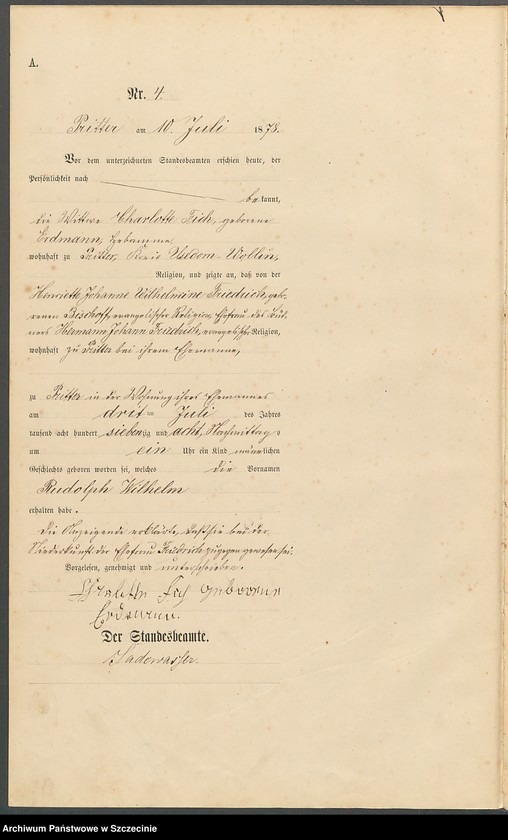 A.
Nr. 4.
Pritter am 10. Juli 1878.
Vor dem unterzeichneten Standesbeamten erschien heute, der
Persönlichkeit nach
bekannt,
die Wittwe Charlotte Fich, geborene
Erdmann, Hebamme,
wohnhaft zu Pritter, Kreis Usedom-Wollin,
Religion, und zeigte an, daß von der
Henriette Johanne Wilhelmine Friedrich, gebo-
renen Bischoff, evangelischer Religion, Ehefrau des
Hermann Johann Friedrich, evangelischer Religion,
wohnhaft zu Pritter bei ihrem Ehemanne,
zu Pritter in der Wohnung ihres Ehemannes
am dritten Juli des Jahres
tausend acht hundert siebenzig und acht, Nachmittags
um ein Uhr ein Kind männlichen
Geschlechts geboren worden sei, welches die Vornamen
Rudolph Wilhelm
erhalten habe.
Die Anzeigende erklärte, daß sie bei der
Niederkunft der Ehefrau Friedrich zugegen gewesen sei.
Vorgelesen, genehmigt und unterschrieben.
geboorne
Erdmann.
Der Standesbeamte.
Sadewasser.
Archiwum Państwowe w Szczecinie